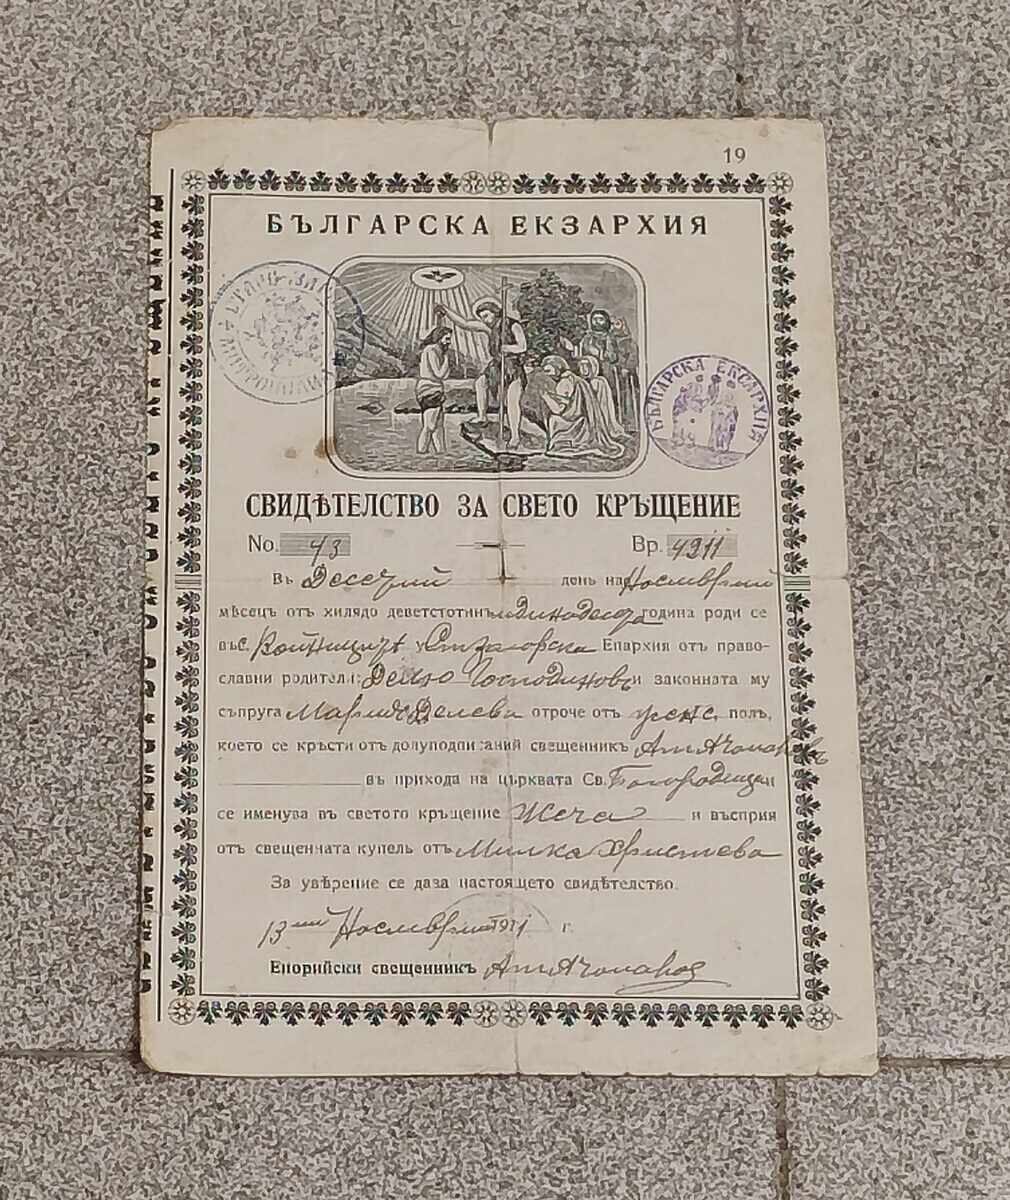 19
БЪЛГАРСКА ЕКЗАРХИЯ
СТАРО-ЗАГ
МИТРОПОЛИЯ
БЪЛГАРСКА ЕКЗАРХІЯ
СВИДѢТЕЛСТВО ЗА СВЕТО КРЪЩЕНИЕ
No. 43 Вр. 4911
Въ Десетий день на Ноемврий
мѣсецъ отъ хилядо деветстотинъ единадесета година роди се
въ с. Войницитѣ Ст Загорска Епархия отъ право-
славни родители: Делю Господиновъ и законната му
съпруга Мария Делева отроче отъ женс. полъ,
което се кръсти отъ долуподписаний свещенникъ Ат.
въ прихода на църквата Св. Богородица и
се именува въ светото кръщение Жеча и възприя
отъ свещенната купель отъ Милка Христева
За увѣрение се дава настоящето свидѣтелство.
13 ий Ноемврий 1911 г.
Енорийски свещенникъ Ат.